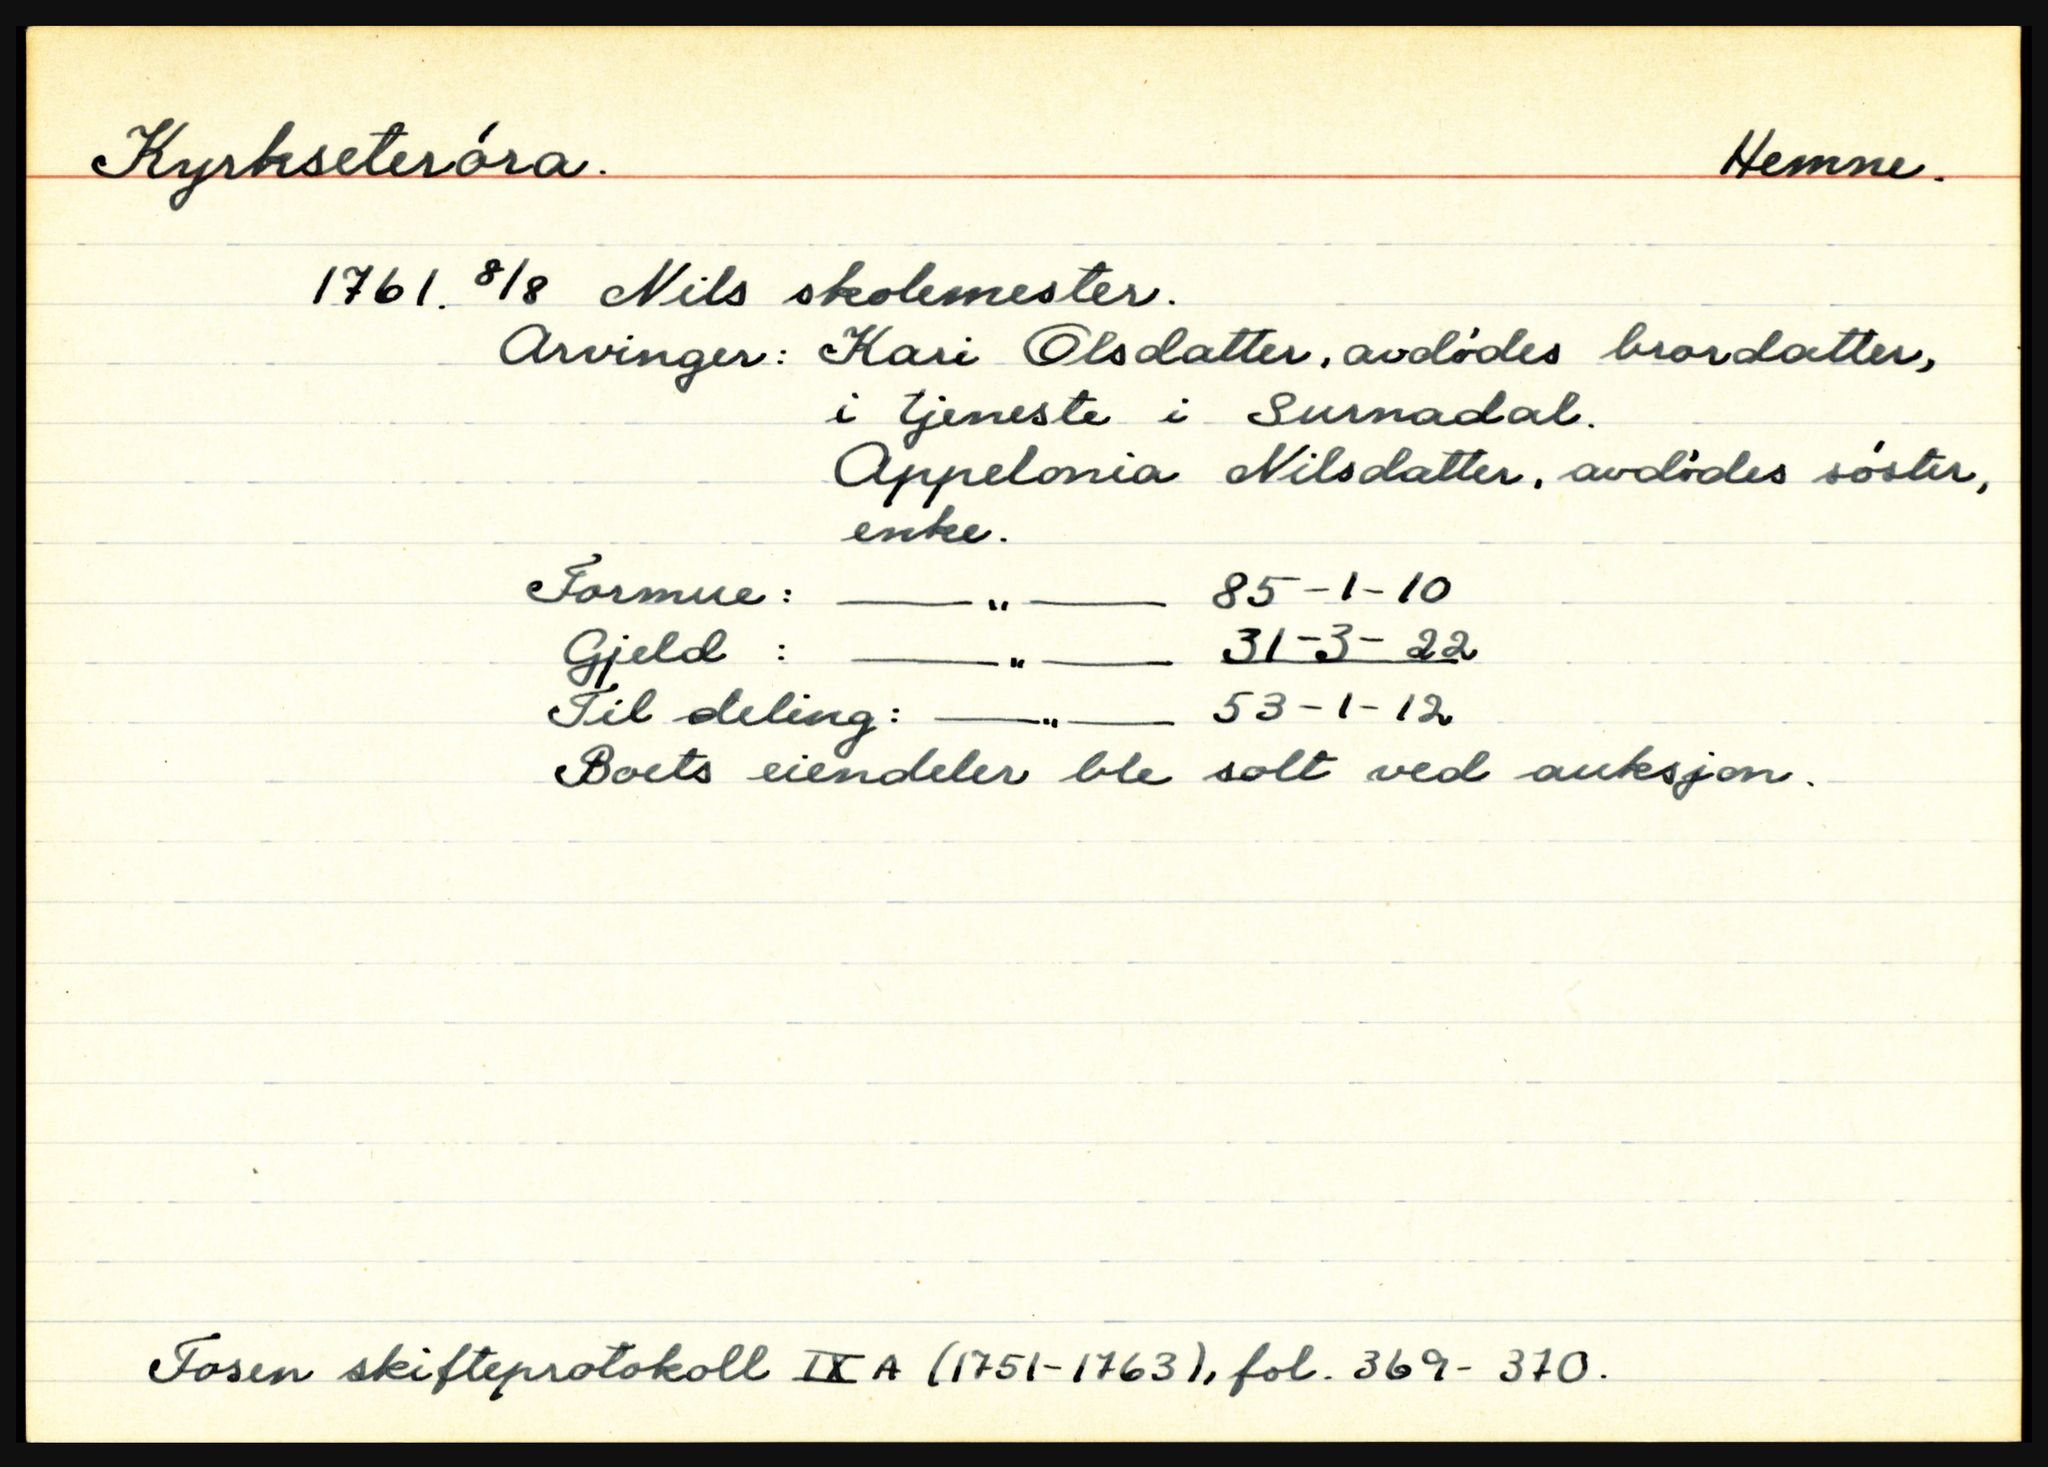 Kyrkseteróra. Hemne.
1761. 8/8 Nils skolemester.
Arvinger: Kari Olsdatter, avdódes brordatter,
i tjeneste i Surnadal.
Appelonia Nilsdatter, avdódes sóster,
enke.
Formue: —„— 85-1-10
Gjeld : —„— 31-3-22
Til deling: —„— 53-1-12
Boets eiendeler ble solt ved auksjon.
Fosen skifteprotokoll IX A (1751-1763), fol. 369-370.